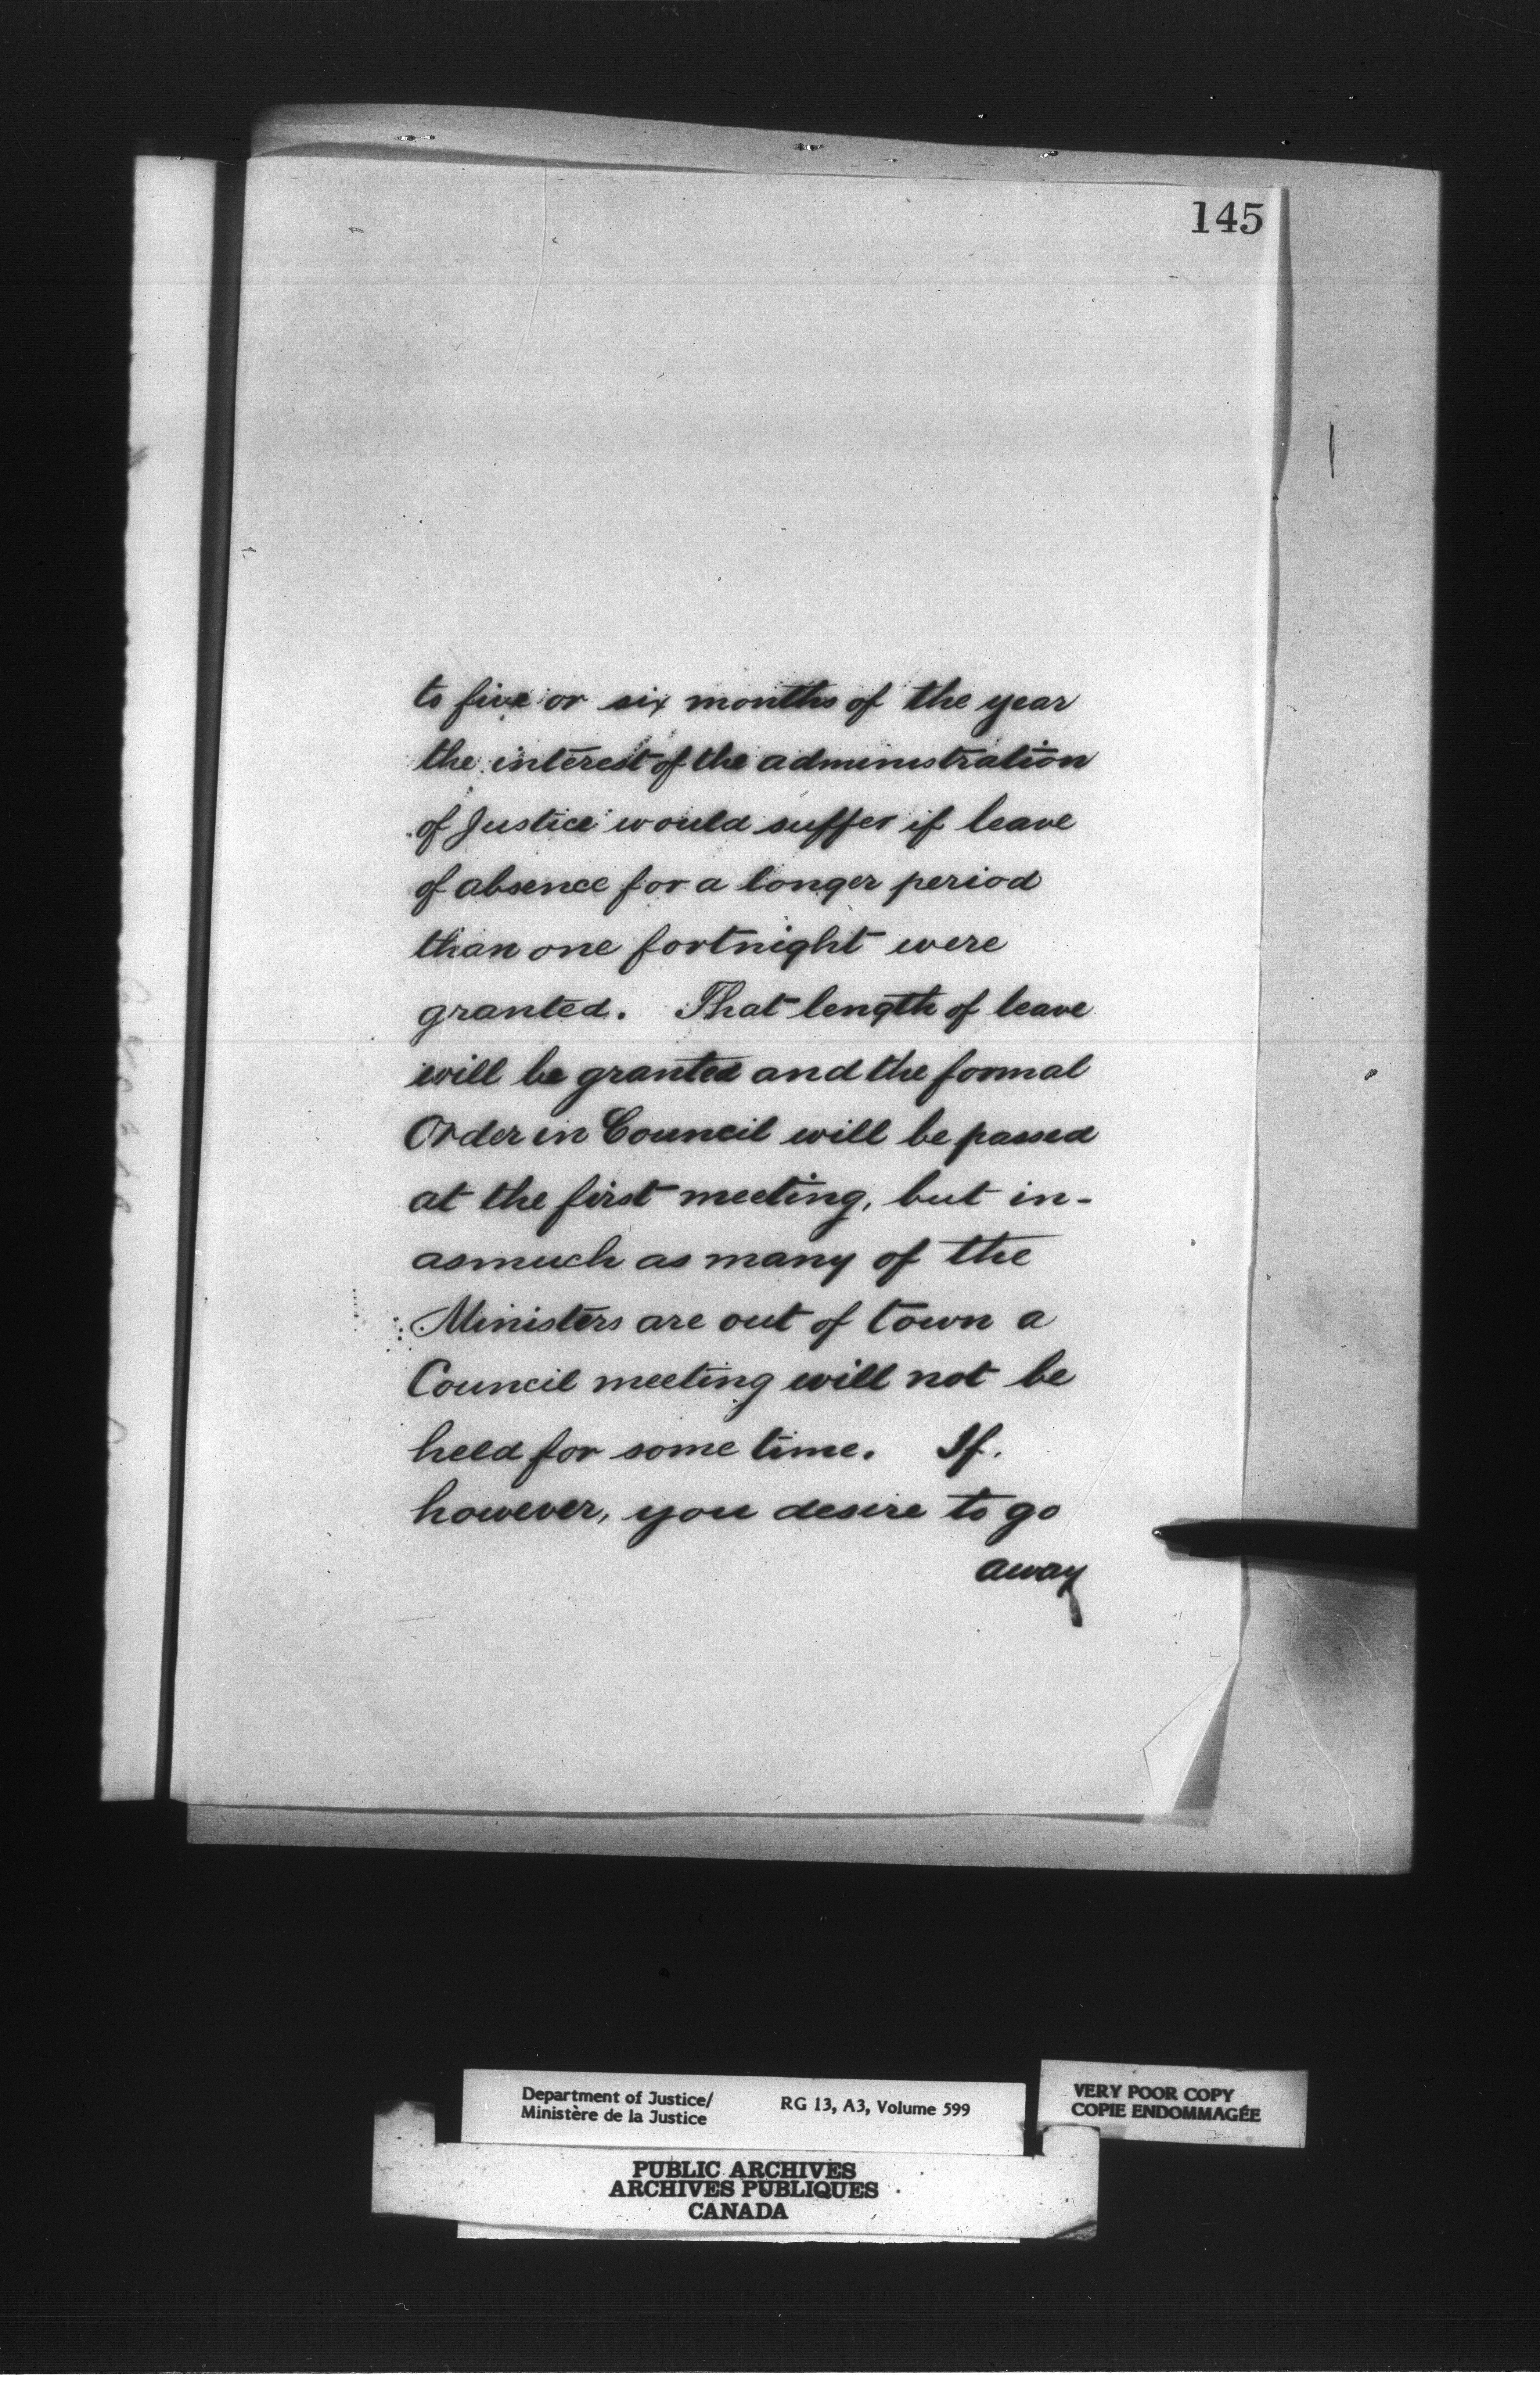 145
to five or six months of the year
the interest of the administration
of Justice would suffer if leave
of absence for a longer period
than one fortnight were
granted. That length of leave
will be granted and the formal
Order in Council will be passed
at the first meeting, but in-
asmuch as many of the
Ministers are out of town a
Council meeting will not be
held for some time. If.
however, you desire to go
away
Department of Justice/
Ministère de la Justice
RG 13, A3, Volume 599
VERY POOR COPY
COPIE ENDOMMAGÉE
PUBLIC ARCHIVES
ARCHIVES PUBLIQUES
CANADA